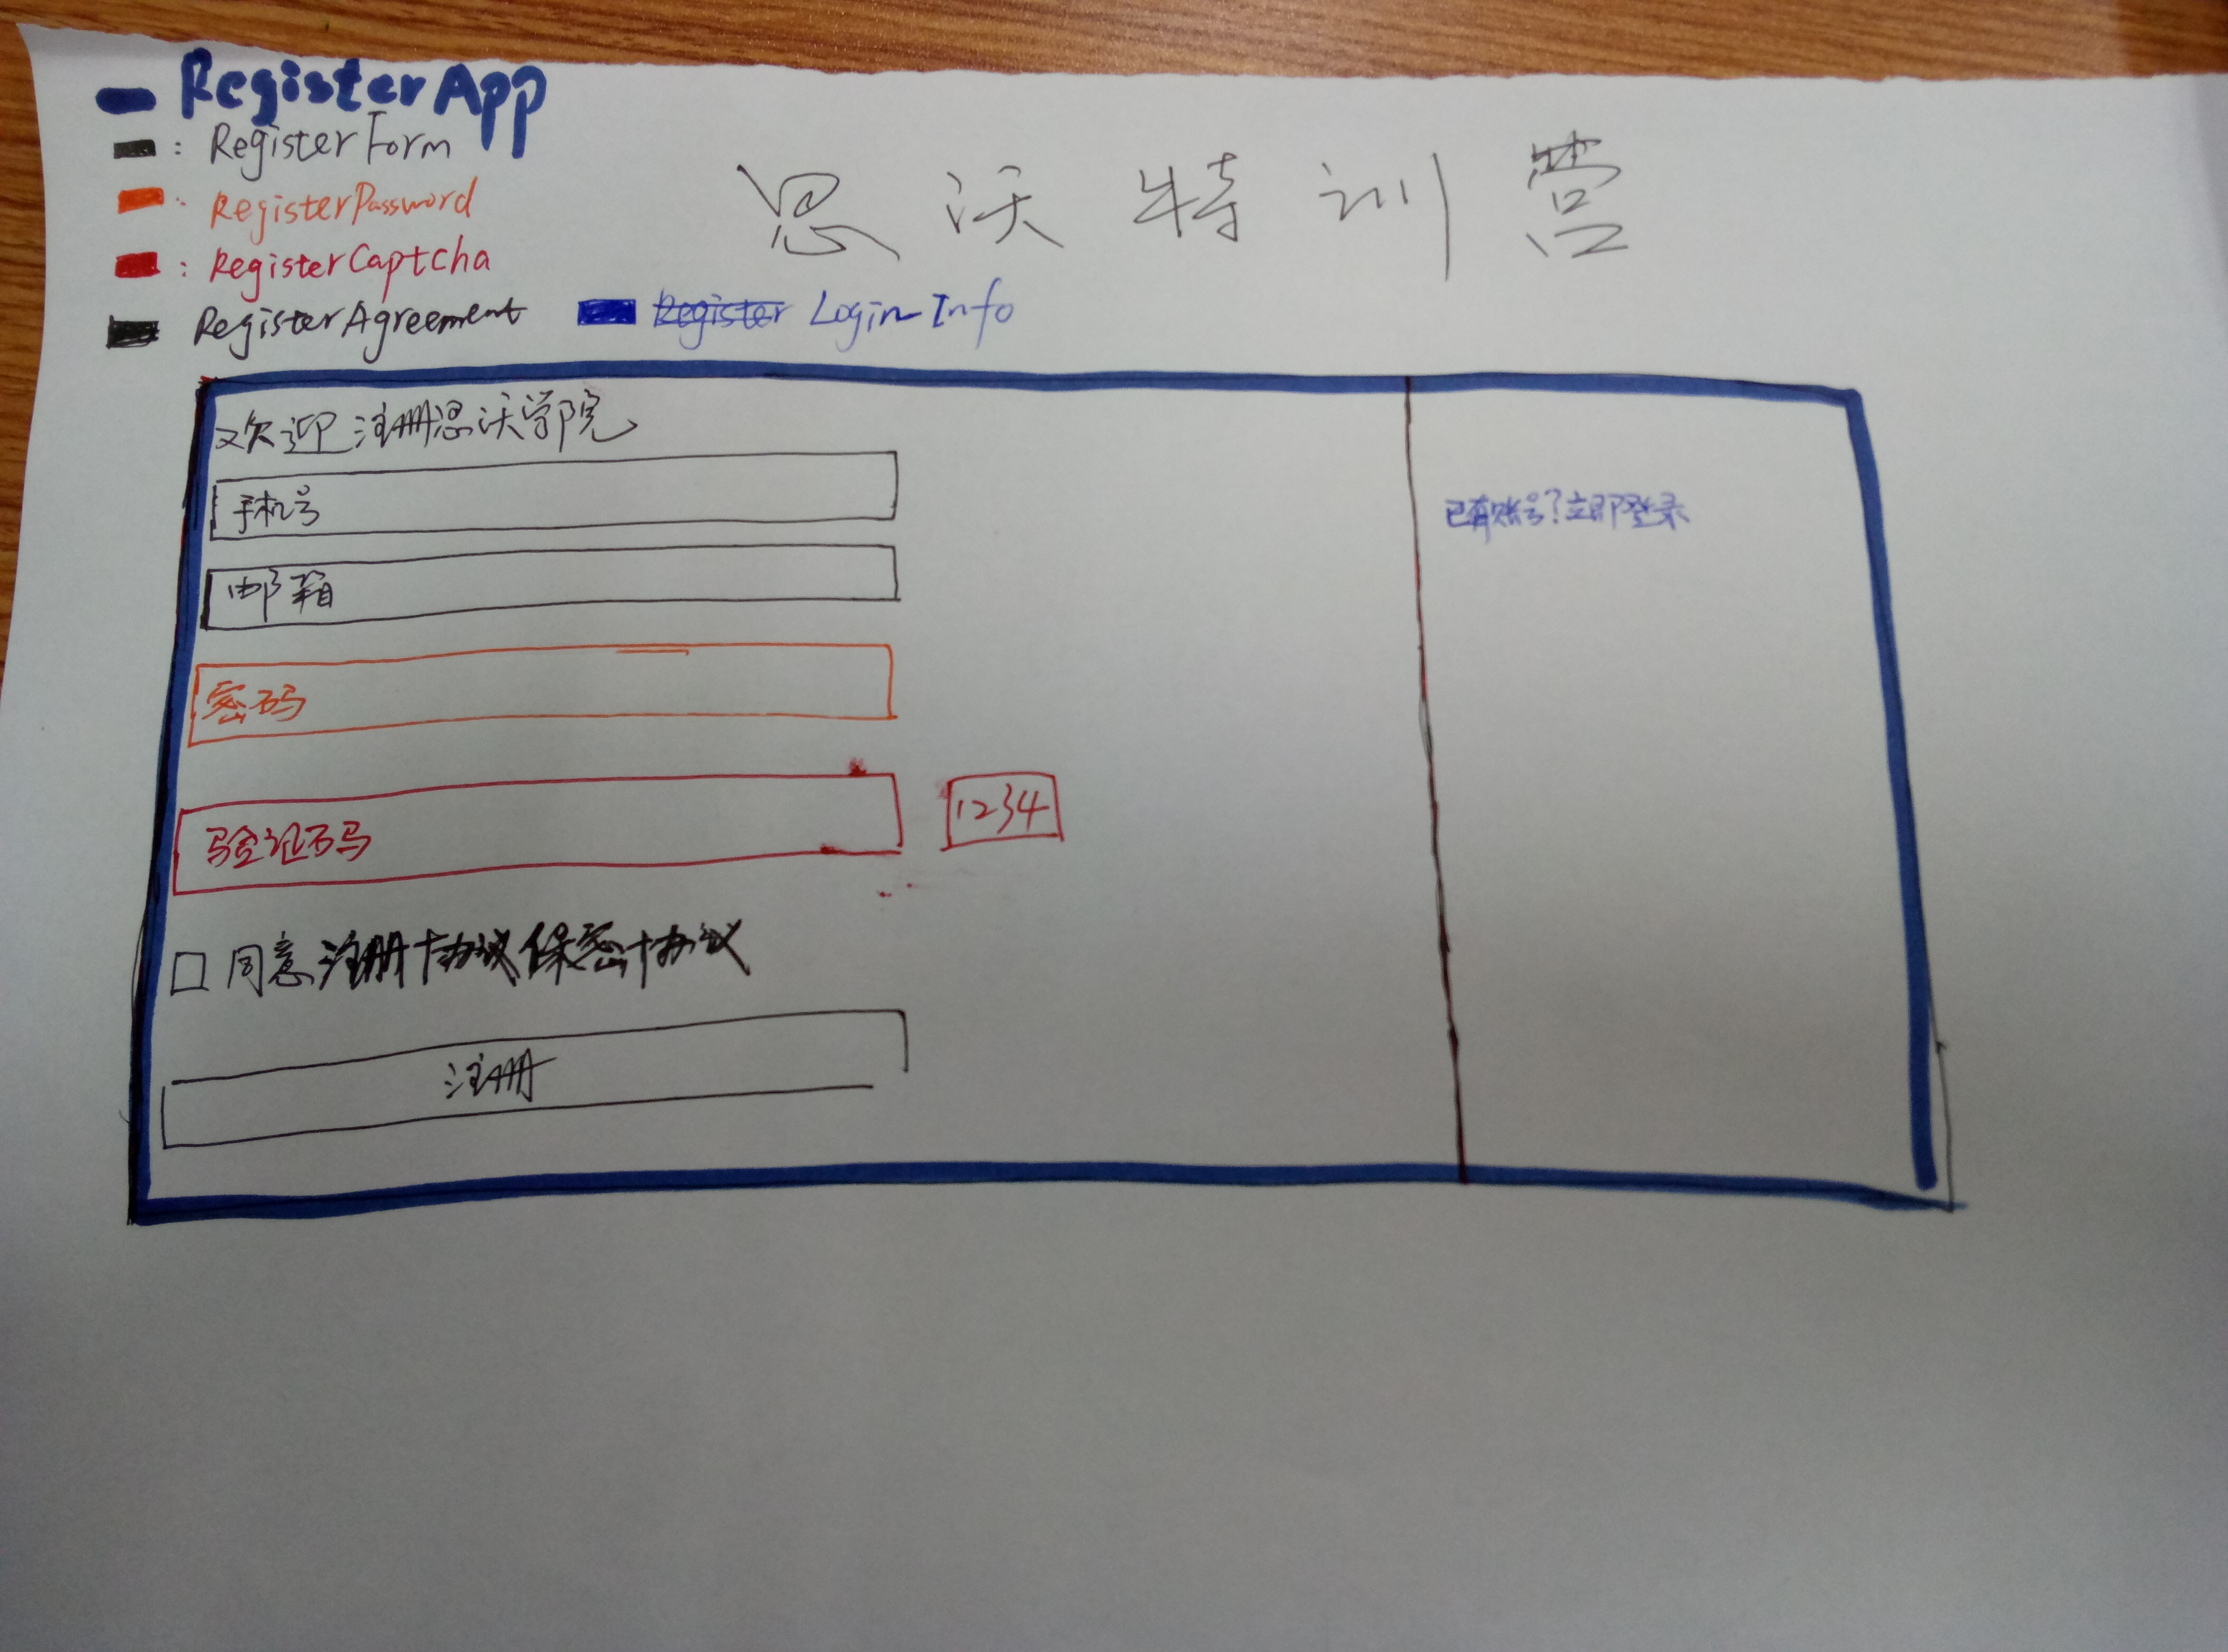 RegisterApp
: RegisterForm
: RegisterPassword
: RegisterCaptcha
RegisterAgreement
Register Login Info
思沃特训营
欢迎注册思沃学院
手机号
邮箱
密码
验证码
1234
同意注册协议保密协议
注册
已有账号?立即登录